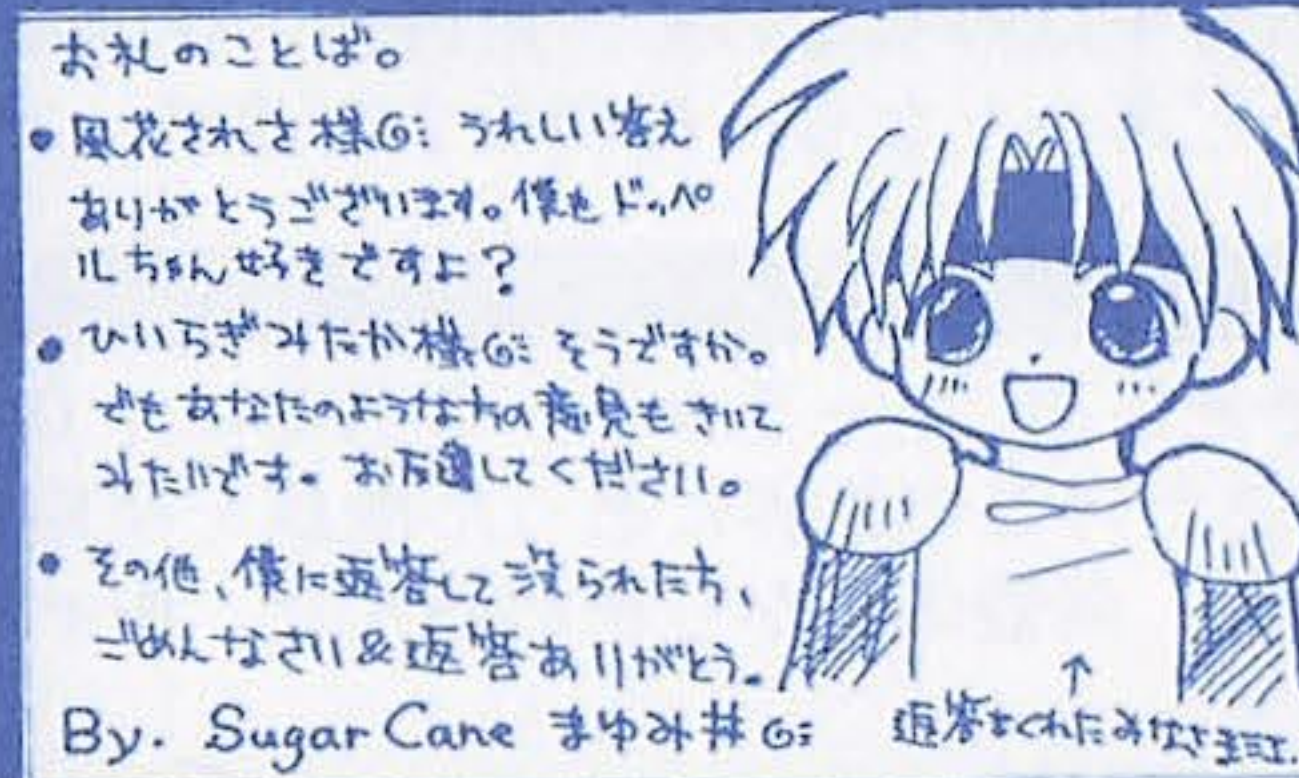 お礼のことば。
• 風花されさ様G: うれしい答え
ありがとうございます。僕もドッペ
ルちゃん好きですよ?
• ひいらぎみたか様G: そうですか。
でもあなたのような方の意見もきいて
みたいです。お返事してください。
• その他、僕に返答して没られた方、
ごめんなさい&返答ありがとう。
By. Sugar Cane まゆみ# G:
↑
返答をくれたみなさま